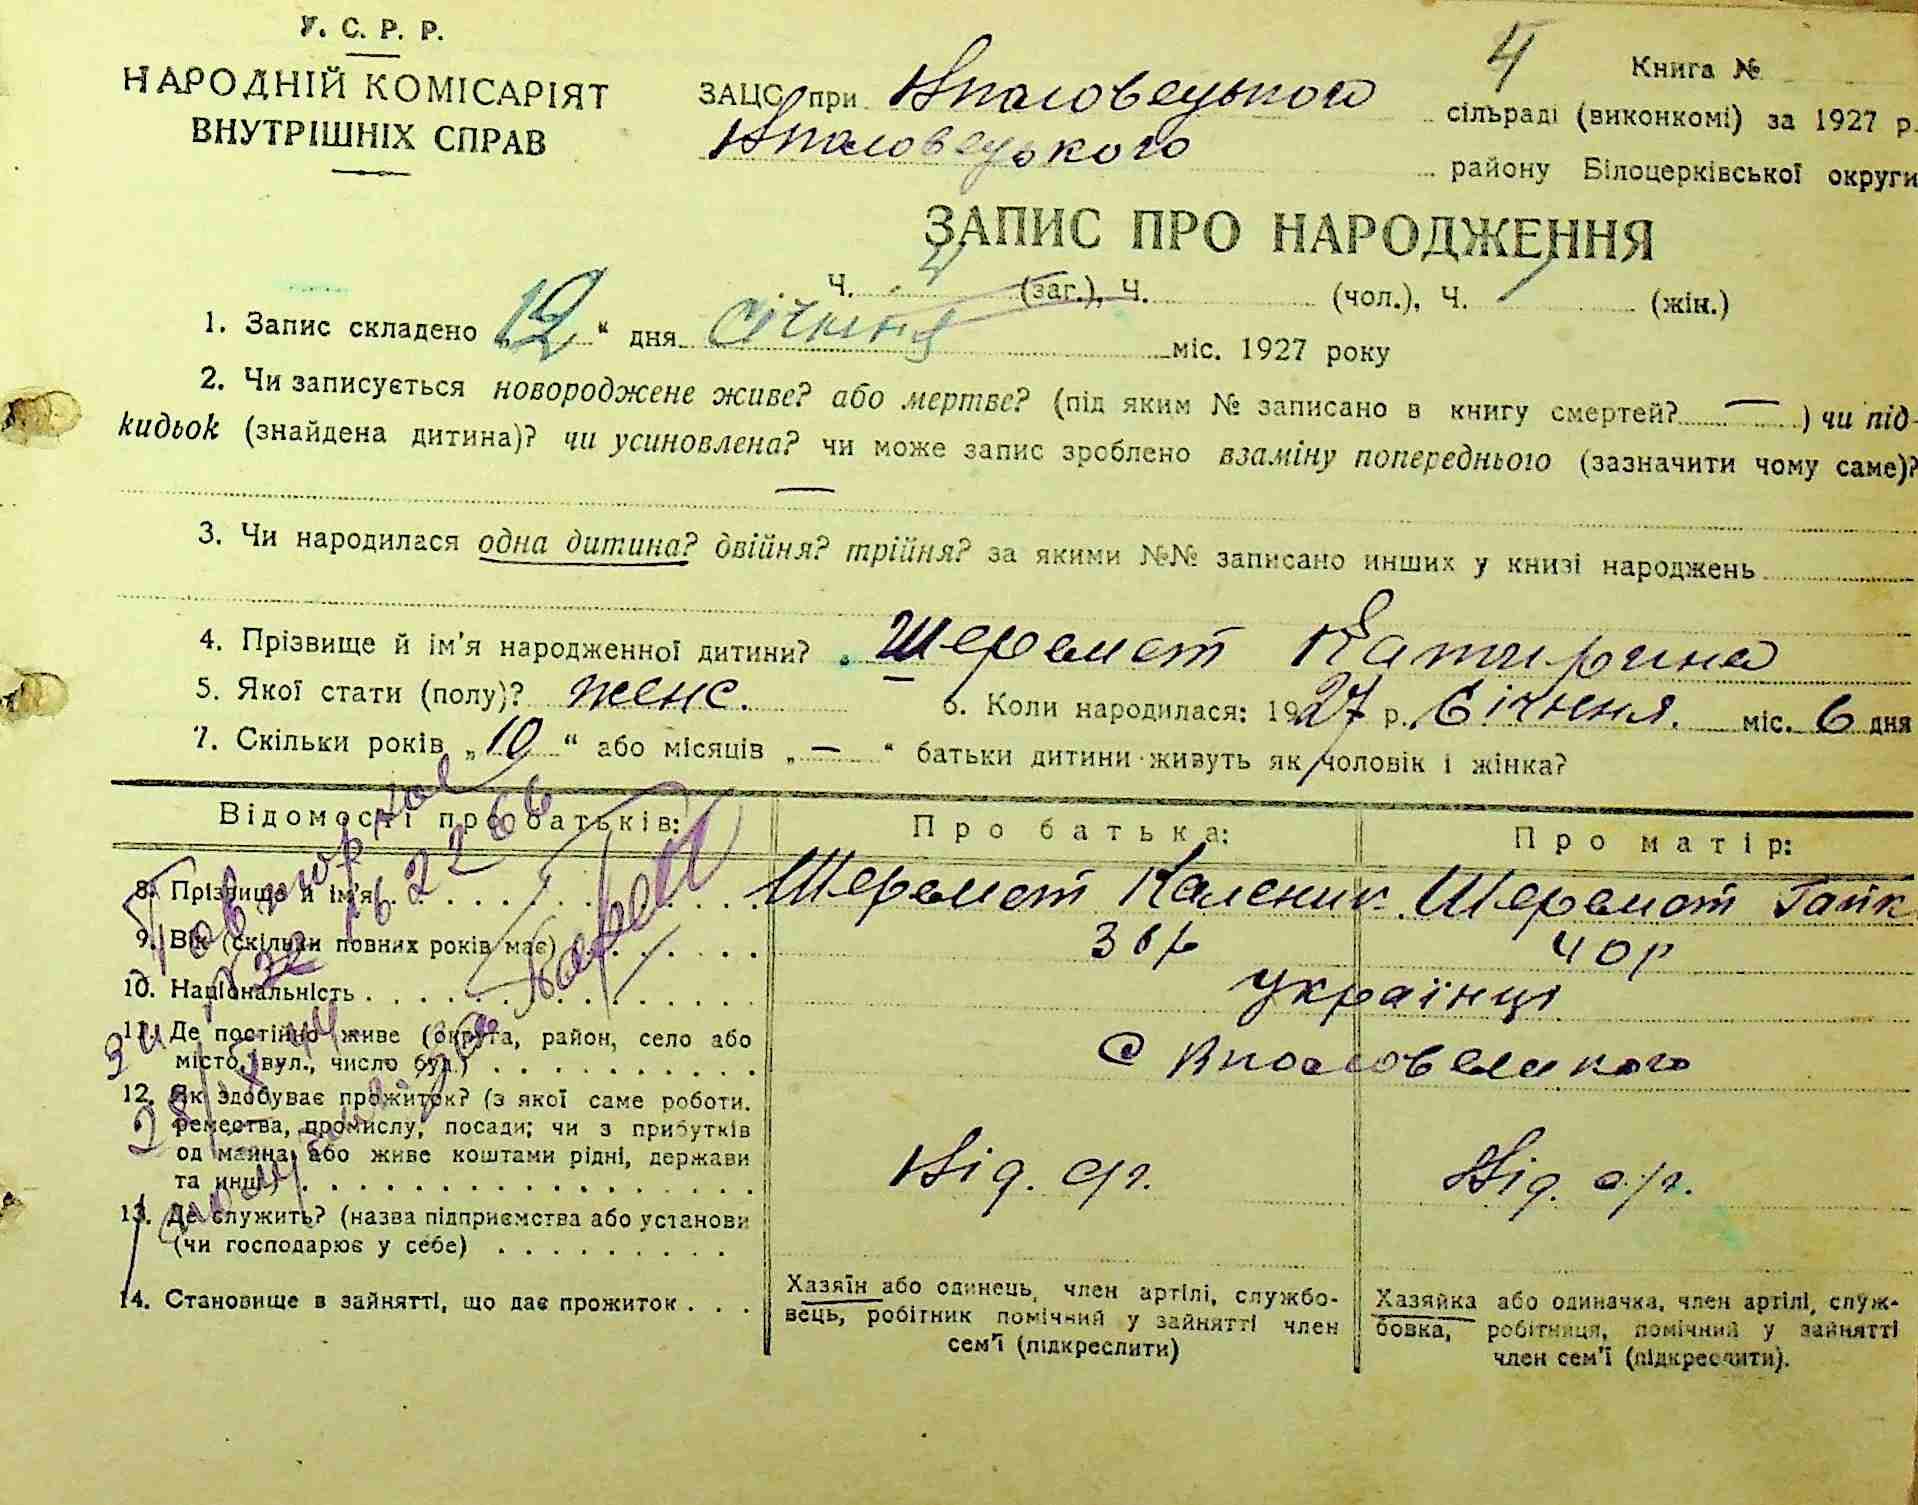 У. С. Р. Р.
НАРОДНІЙ КОМІСАРІЯТ
ВНУТРІШНІХ СПРАВ
4
Книга №
ЗАЦС при
сільраді (виконкомі) за 1927 р.
району Білоцерківської округи
ЗАПИС ПРО НАРОДЖЕННЯ
Ч. 4 (заг.), Ч. (чол.), Ч. 1 (жін.)
1. Запис складено „12“ дня січня міс. 1927 року
2. Чи записується новороджене живе? або мертве? (під яким № записано в книгу смертей? — ) чи під-
кидьок (знайдена дитина)? чи усиновлена? чи може запис зроблено взаміну попереднього (зазначити чому саме)?
—
3. Чи народилася одна дитина? двійня? трійня? за якими №№ записано инших у книзі народжень
4. Прізвище й ім'я народженної дитини? Шеремет Катирина
5. Якої стати (полу)? женс. 6. Коли народилася: 1927 р. Січненя. міс. 6 дня
7. Скільки років „10“ або місяців „—“ батьки дитини живуть як чоловік і жінка?
Відомості про батьків: Про батька: Про матір:
8. Прізвище й ім'я Шеремет Каленик Шеремет Гапк
9. Вік (скільки повних років має) 40 р
10. Національність українці
11. Де постійно живе (округа, район, село або
місто, вул., число буд.) с
12. Як здобуває прожиток? (з якої саме роботи,
ремества, промислу, посади; чи з прибутків
од майна, або живе коштами рідні, держави
та инш.)
Від. с/г. Від. с/г.
13. Де служить? (назва підприємства або установи
(чи господарює у себе)
14. Становище в зайнятті, що дає прожиток
Хазяїн або одинець, член артілі, службо-
вець, робітник помічний у зайнятті член
сем'ї (підкреслити)
Хазяйка або одиначка, член артілі, служ-
бовка, робітниця, помічний у зайнятті
член сем'ї (підкреслити).